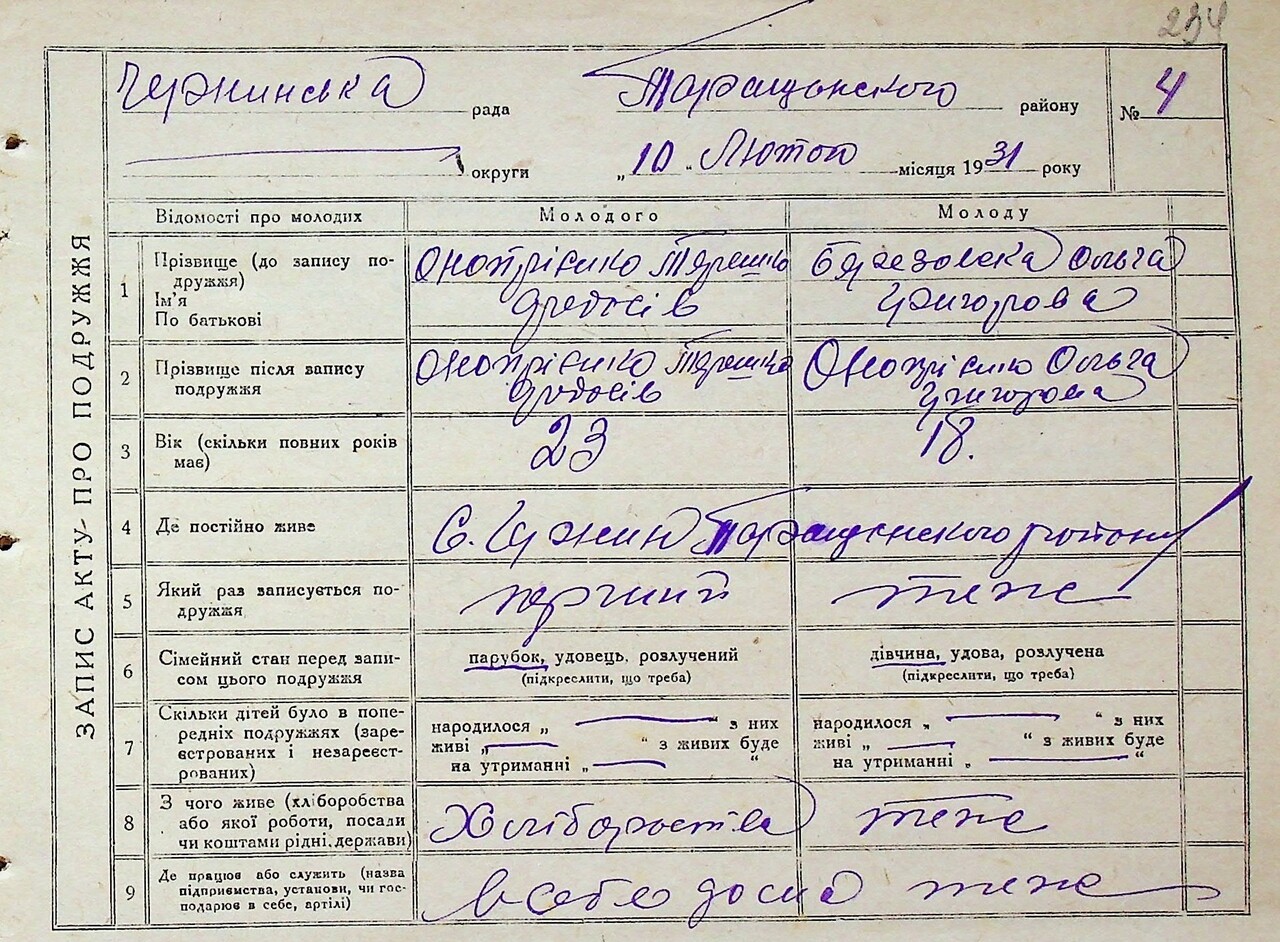 234
ЗАПИС АКТУ ПРО ПОДРУЖЖЯ
Чернинська рада Таращанского району № 4
округи „10“ Лютого місяця 1931 року
Відомості про молодих Молодого Молоду
1 Прізвище (до запису подружжя) Онопрієнко Терешко Березовска Ольга
Ім'я Федосів Григорова
По батькові
2 Прізвище після запису Онопрієнко Терешко Онопрієнко Ольга
подружжя Федосів Григорова
3 Вік (скільки повних років 23 18.
має)
4 Де постійно живе С. Чернин Таращенского району
5 Який раз записується по- перший теж
дружжя
6 Сімейний стан перед запи- парубок, удовець, розлучений дівчина, удова, розлучена
сом цього подружжя (підкреслити, що треба) (підкреслити, що треба)
7 Скільки дітей було в попе- народилося „ “ з них народилося „ “ з них
редніх подружжях (заре- живі „ “ з живих буде живі „ “ з живих буде
єстрованих і незареєст- на утриманні „ “ на утриманні „ “
рованих)
8 З чого живе (хліборобства Хлібороства теж
або якої роботи, посади
чи коштами рідні, держави)
9 Де працює або служить (назва в себе дома теж
підприємства, установи, чи гос-
подарює в себе, артілі)